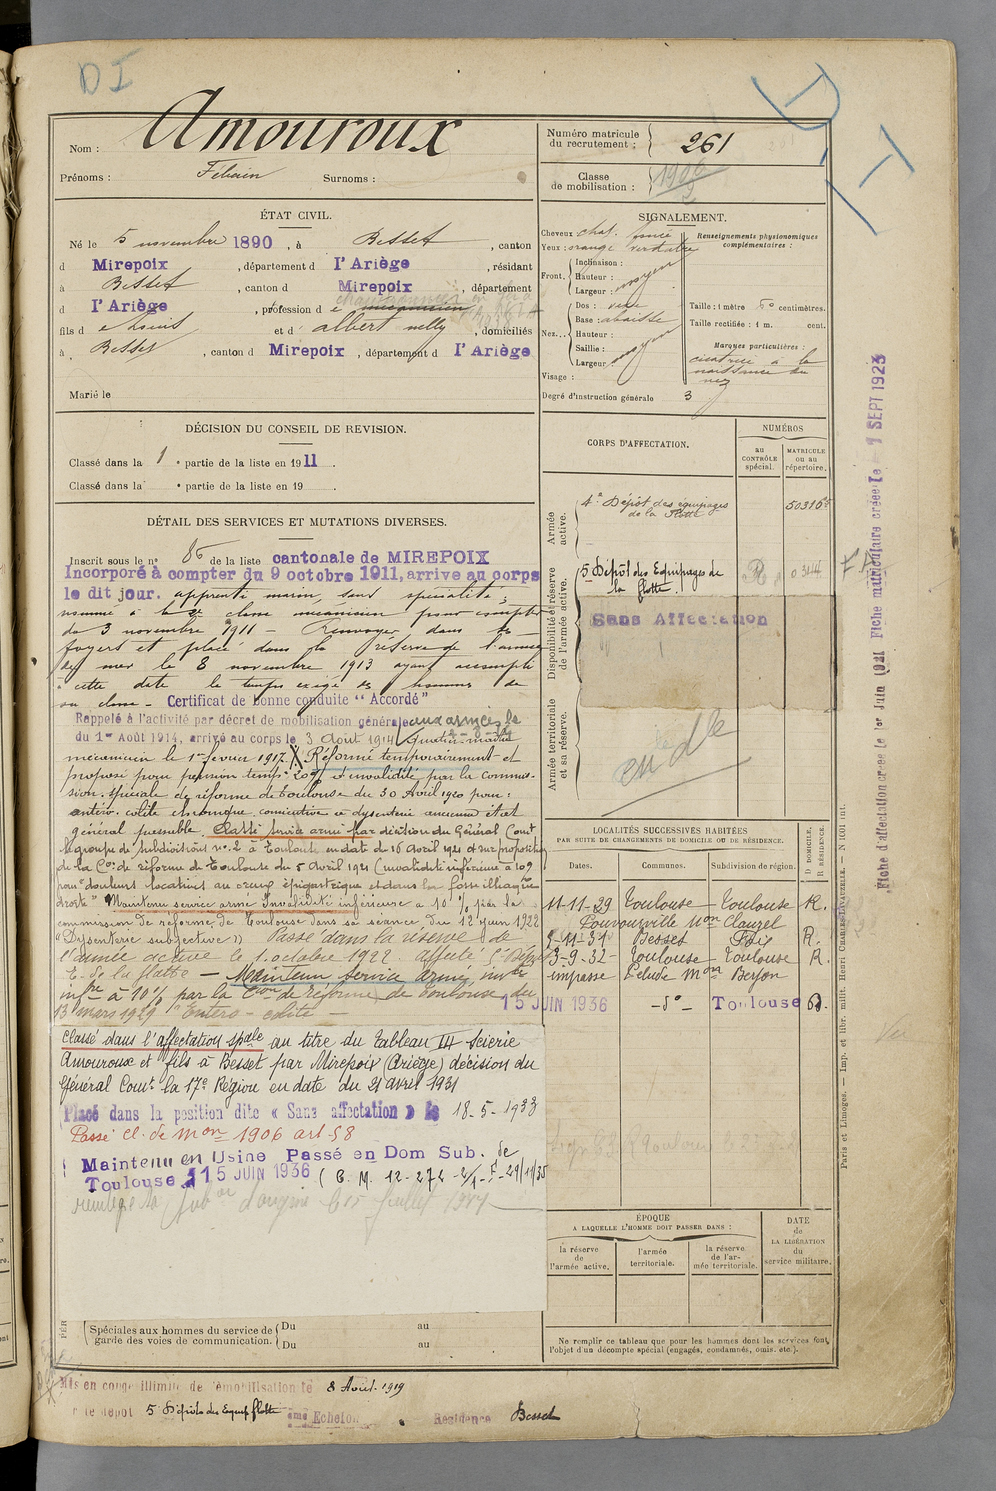 DI
Nom : Amouroux
Prénoms : Surnoms :
Numéro matricule du recrutement : 261
Classe de mobilisation : 1906
ÉTAT CIVIL.
Né le 5 novembre 1890, à Besset, canton
d Mirepoix, département d l'Ariège, résidant
à Besset, canton d Mirepoix, département
d l'Ariège, profession d e mécanicien
fils d e Louis et d' albert nelly, domiciliés
à Besset, canton d Mirepoix, département d l'Ariège
Marié le
SIGNALEMENT.
Cheveux chat. foncé
Yeux : orangé verdâtre
Front. Inclinaison :
Hauteur : moyen
Largeur :
Nez... Dos :
Base : abaissée
Hauteur :
Saillie : moyen
Largeur
Visage :
Renseignements physionomiques complémentaires :
Taille : 1 mètre 60 centimètres.
Taille rectifiée : 1 m. cent.
Marques particulières :
cicatrice à la
naissance du
nez
Degré d'instruction générale 3
DÉCISION DU CONSEIL DE REVISION.
Classé dans la 1 e partie de la liste en 1911.
Classé dans la e partie de la liste en 19 .
DÉTAIL DES SERVICES ET MUTATIONS DIVERSES.
Inscrit sous le n° 86 de la liste cantonale de MIREPOIX
Incorporé à compter du 9 octobre 1911, arrive au corps
le dit jour. apprenti marin sans spécialité ;
nommé à la 2e classe mécanicien pour compter
du 3 novembre 1911 — Renvoyé dans ses
foyers et placé dans la réserve de l'armée
de mer le 8 novembre 1913 ayant accompli
à cette date le temps exigé des hommes de
sa classe - Certificat de bonne conduite "Accordé"
Rappelé à l'activité par décret de mobilisation générale aux armées le
du 1er Août 1914, arrivé au corps le 3 Août 1914 Quartier-maître
mécanicien le 1er février 1917. X Réformé temporairement et
proposé pour pension temp. 20% d'invalidité par la Commis-
sion spéciale de réforme de Toulouse du 30 Avril 1920 pour :
entéro-colite chronique, consécutive à dysenterie ancienne état
général passable. Classé service armé par décision du Général Comt
le groupe de subdivisions n° 2 à Toulouse en date du 16 Avril 1921 et sur proposition
de la Con de réforme de Toulouse du 5 Avril 1921 (invalidité inférieure à 10%
pour "douleurs localisées au creux épigastrique et dans la fosse illiaque
droite" Maintenu service armé Invalidité inférieure à 10 % par la
commission de réforme de Toulouse dans sa séance du 12 juin 1922
"Dysenterie subjective" Passé dans la réserve de
l'armée active le 1. octobre 1922. affecté 5e Dépôt
E. de la flotte — Maintenu Service armé, invté
infre à 10% par la Con de réforme de Toulouse du
13 mars 1929 "Entero - colite" —
Classé dans l'affectation spale au titre du tableau III Scierie
Amouroux et fils à Besset par Mirepoix (Ariège) décision du
Général Comt la 17e Région en date du 21 avril 1931
Placé dans la position dite « Sans affectation » le 18-5-1933
Passé cl. de mon 1906 art 58
Maintenu en Usine Passé en Dom Sub. de
Toulouse 15 JUIN 1936 (B. M. 12-272 - 2/1-F-29/11/35
CORPS D'AFFECTATION.
NUMÉROS
au CONTRÔLE spécial.
MATRICULE ou au répertoire.
Armée active.
4e Dépôt des équipages
de la Flotte
Disponibilité et réserve de l'armée active.
5 Dépôt des Equipages de
la flotte.
Sans Affectation
Armée territoriale et sa réserve.
LOCALITÉS SUCCESSIVES HABITÉES
PAR SUITE DE CHANGEMENTS DE DOMICILE OU DE RÉSIDENCE.
Dates. Communes. Subdivision de région. D DOMICILE, R RÉSIDENCE.
11-11-29 Toulouse Toulouse R.
Pouvourville Mon Clauzel
5-11-31 Besset Foix R.
3-9-32 Toulouse Toulouse R.
impasse Lelude Mon Berjon
15 JUIN 1936 -do- Toulouse D.
ÉPOQUE
A LAQUELLE L'HOMME DOIT PASSER DANS :
la réserve de l'armée active.
l'armée territoriale.
la réserve de l'armée territoriale.
DATE de LA LIBÉRATION du service militaire.
Ne remplir ce tableau que pour les hommes dont les services font
l'objet d'un décompte spécial (engagés, condamnés, omis. etc.).
PÉR
Spéciales aux hommes du service de garde des voies de communication.
Du au
Du au
Mis en congé illimité de démobilisation le 8 Août 1919
le dépôt 5 Dépôts des Equip flotte ème Echelon Résidence Besset
Fiche d'affectation créée le 1er Juin 1921 Fiche matriculaire créée le 1 SEPT 1923
Paris et Limoges. — Imp. et libr. milit. Henri CHARLES-LAVAUZELLE. — N° 1001 mt.